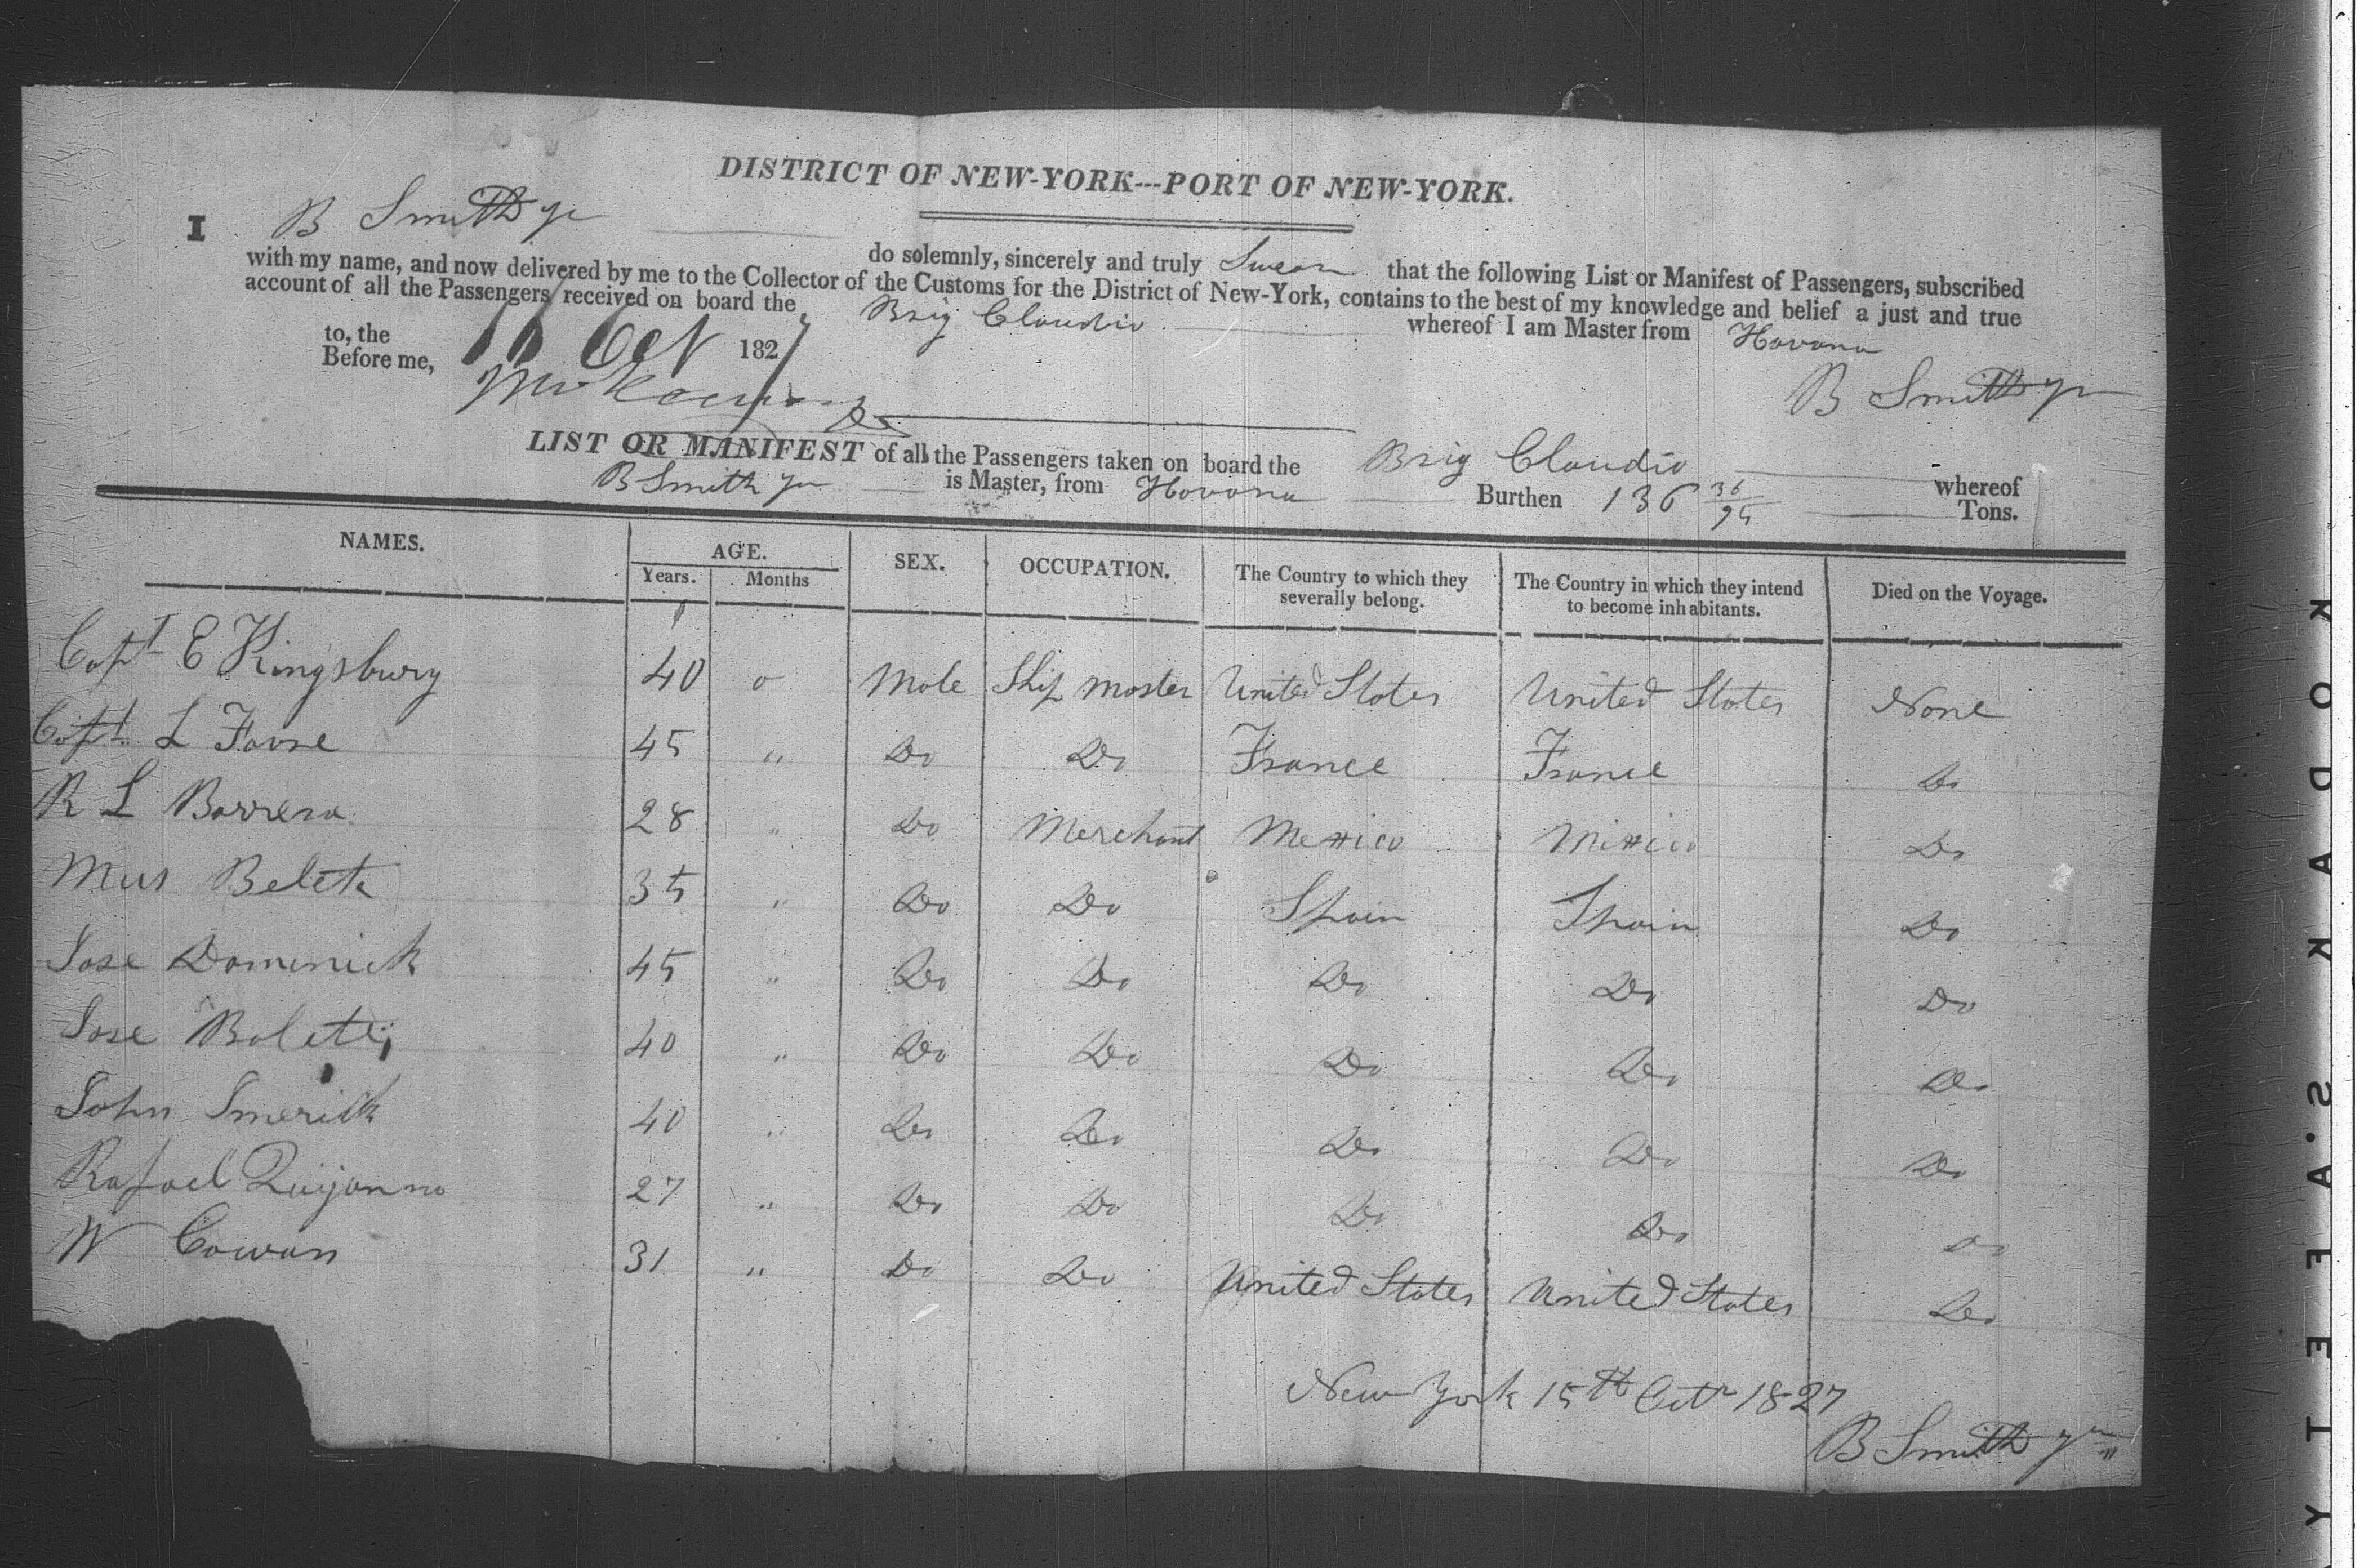 DISTRICT OF NEW-YORK---PORT OF NEW-YORK.
I B Smith Jr do solemnly, sincerely and truly Swear that the following List or Manifest of Passengers, subscribed
with my name, and now delivered by me to the Collector of the Customs for the District of New-York, contains to the best of my knowledge and belief a just and true
account of all the Passengers received on board the Brig Claudio whereof I am Master from Havana
to, the 16 Oct 1827
Before me,
B Smith Jr
LIST OR MANIFEST of all the Passengers taken on board the Brig Claudio whereof
B Smith Jr is Master, from Havana Burthen 136 36/95 Tons.
NAMES. AGE. SEX. OCCUPATION. The Country to which they severally belong. The Country in which they intend to become inhabitants. Died on the Voyage.
Years. Months
Capt E Kingsbury 40 o Male Ship Master United States United States None
Capt. L Favre 45 " Do Do France France Do
R L Barrera 28 " Do Merchant Mexico Mexico Do
Mus Belete 35 " Do Do Spain Spain Do
Jose Domenick 45 " Do Do Do Do Do
Jose Bolete 40 " Do Do Do Do Do
John Smerick 40 " Do Do Do Do Do
Rafael Quijanno 27 " Do Do Do Do Do
W Cowan 31 " Do Do United States United States Do
New York 15th Octr 1827
B Smith Jr
KODAK S.A.F.E.T.Y